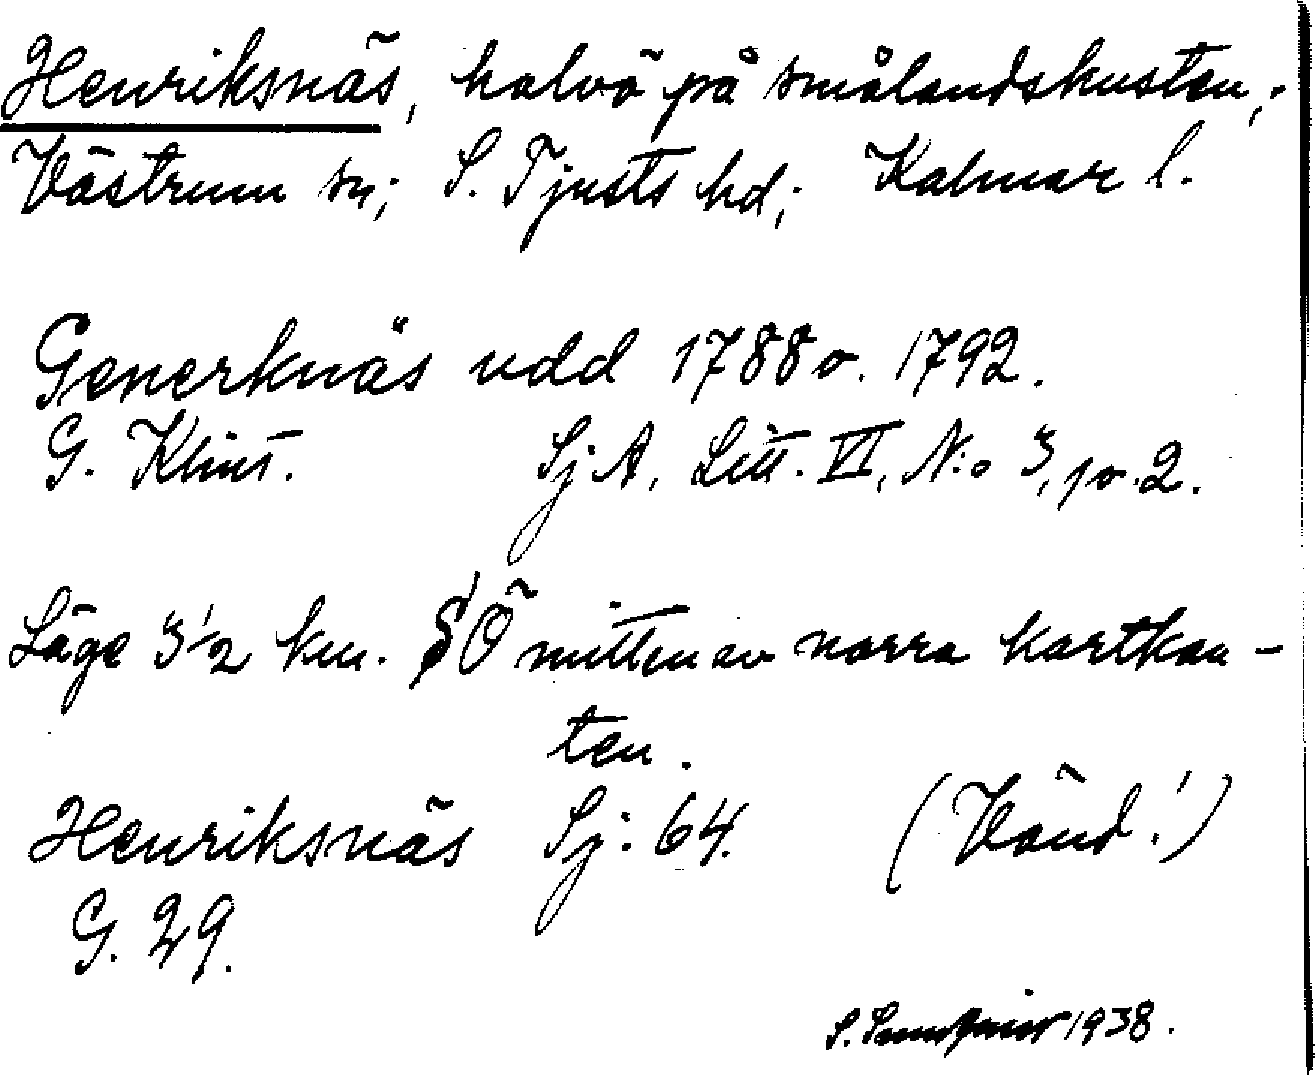 Henriksnäs, halvö på smålandskusten,;
Västrum sn; S. Tjusts hd; Kalmar l.
Generknäs udd 1788 o. 1792.
G. Klint. Sj A, Litt. VI, N:o 3, po. 2.
Läge 3 1/2 km. SÖ mitten av norra kartkan-
ten.
Henriksnäs Sj: 64. (Vänd!)
G. 29.
S. 1938.